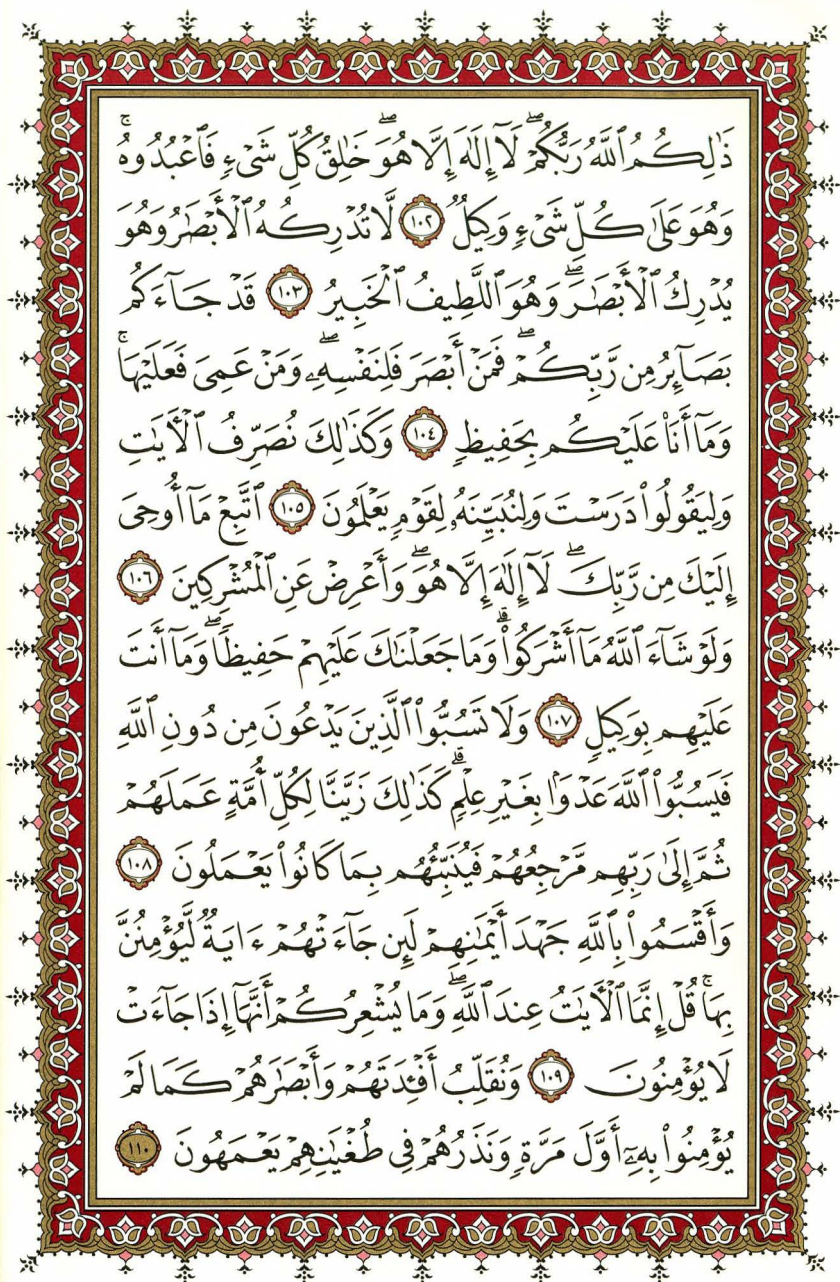 ذَٰلِكُمُ ٱللَّهُ رَبُّكُمْ ۖ لَآ إِلَٰهَ إِلَّا هُوَ ۖ خَٰلِقُ كُلِّ شَىْءٍ فَٱعْبُدُوهُ ۚ
وَهُوَ عَلَىٰ كُلِّ شَىْءٍ وَكِيلٌ ١٠٢ لَّا تُدْرِكُهُ ٱلْأَبْصَٰرُ وَهُوَ
يُدْرِكُ ٱلْأَبْصَٰرَ ۖ وَهُوَ ٱللَّطِيفُ ٱلْخَبِيرُ ١٠٣ قَدْ جَآءَكُم
بَصَآئِرُ مِن رَّبِّكُمْ ۖ فَمَنْ أَبْصَرَ فَلِنَفْسِهِۦ ۖ وَمَنْ عَمِىَ فَعَلَيْهَا ۚ
وَمَآ أَنَا۠ عَلَيْكُم بِحَفِيظٍ ١٠٤ وَكَذَٰلِكَ نُصَرِّفُ ٱلْءَايَٰتِ
وَلِيَقُولُوا۟ دَرَسْتَ وَلِنُبَيِّنَهُۥ لِقَوْمٍ يَعْلَمُونَ ١٠٥ ٱتَّبِعْ مَآ أُوحِىَ
إِلَيْكَ مِن رَّبِّكَ ۖ لَآ إِلَٰهَ إِلَّا هُوَ ۖ وَأَعْرِضْ عَنِ ٱلْمُشْرِكِينَ ١٠٦
وَلَوْ شَآءَ ٱللَّهُ مَآ أَشْرَكُوا۟ ۗ وَمَا جَعَلْنَٰكَ عَلَيْهِمْ حَفِيظًا ۖ وَمَآ أَنتَ
عَلَيْهِم بِوَكِيلٍ ١٠٧ وَلَا تَسُبُّوا۟ ٱلَّذِينَ يَدْعُونَ مِن دُونِ ٱللَّهِ
فَيَسُبُّوا۟ ٱللَّهَ عَدْوًۢا بِغَيْرِ عِلْمٍ ۗ كَذَٰلِكَ زَيَّنَّا لِكُلِّ أُمَّةٍ عَمَلَهُمْ
ثُمَّ إِلَىٰ رَبِّهِم مَّرْجِعُهُمْ فَيُنَبِّئُهُم بِمَا كَانُوا۟ يَعْمَلُونَ ١٠٨
وَأَقْسَمُوا۟ بِٱللَّهِ جَهْدَ أَيْمَٰنِهِمْ لَئِن جَآءَتْهُمْ ءَايَةٌ لَّيُؤْمِنُنَّ
بِهَا ۚ قُلْ إِنَّمَا ٱلْءَايَٰتُ عِندَ ٱللَّهِ ۖ وَمَا يُشْعِرُكُمْ أَنَّهَآ إِذَا جَآءَتْ
لَا يُؤْمِنُونَ ١٠٩ وَنُقَلِّبُ أَفْـِٔدَتَهُمْ وَأَبْصَٰرَهُمْ كَمَا لَمْ
يُؤْمِنُوا۟ بِهِۦٓ أَوَّلَ مَرَّةٍ وَنَذَرُهُمْ فِى طُغْيَٰنِهِمْ يَعْمَهُونَ ١١٠